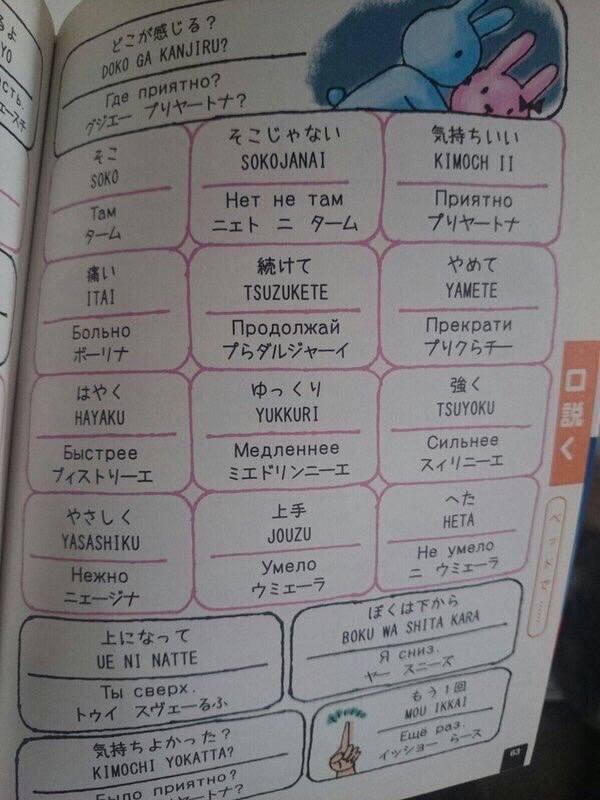 るよ
YO
ость.
ェースチ
どこが感じる?
DOKO GA KANJIRU?
Где приятно?
グジエー プリヤートナ?
そこ
SOKO
Там
ターム
そこじゃない
SOKOJANAI
Нет не там
ニェト ニ ターム
気持ちいい
KIMOCH II
Приятно
プリヤートナ
痛い
ITAI
Больно
ボーリナ
続けて
TSUZUKETE
Продолжай
プらダルジャーイ
やめて
YAMETE
Прекрати
プリクらチー
はやく
HAYAKU
Быстрее
ブィストリーエ
ゆっくり
YUKKURI
Медленнее
ミエドリンニーエ
強く
TSUYOKU
Сильнее
スィリニーエ
やさしく
YASASHIKU
Нежно
ニェージナ
上手
JOUZU
Умело
ウミェーラ
へた
HETA
Не умело
ニ ウミェーラ
上になって
UE NI NATTE
Ты сверх.
トゥイ スヴェーるふ
ぼくは下から
BOKU WA SHITA KARA
Я сниз.
ヤー スニーズ
もう1回
MOU IKKAI
Ещё раз.
イッショー らース
気持ちよかった?
KIMOCHI YOKATTA?
Было приятно?
プリヤートナ?
口説く
63